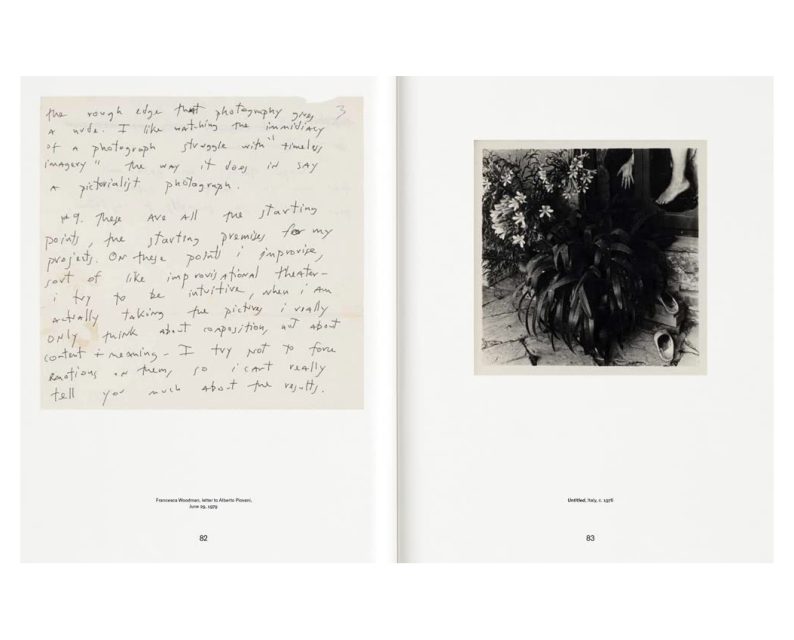 3
the rough edge that photography gives
a nude. I like watching the immidiacy
of a photograph struggle with "timeless
imagery" the way it does in say
a pictorialist photograph.
#9. These are all the starting
points, the starting premises for my
projects. On these points i improvise,
sort of like improvisational theater-
i try to be intuitive, when i am
actually taking the pictures i really
only think about composition, not about
content + meaning - I try not to force
emotions on them, so i cant really
tell you much about the results.
Francesca Woodman, letter to Alberto Piovani,
June 29, 1979
82
Untitled, Italy, c. 1978
83